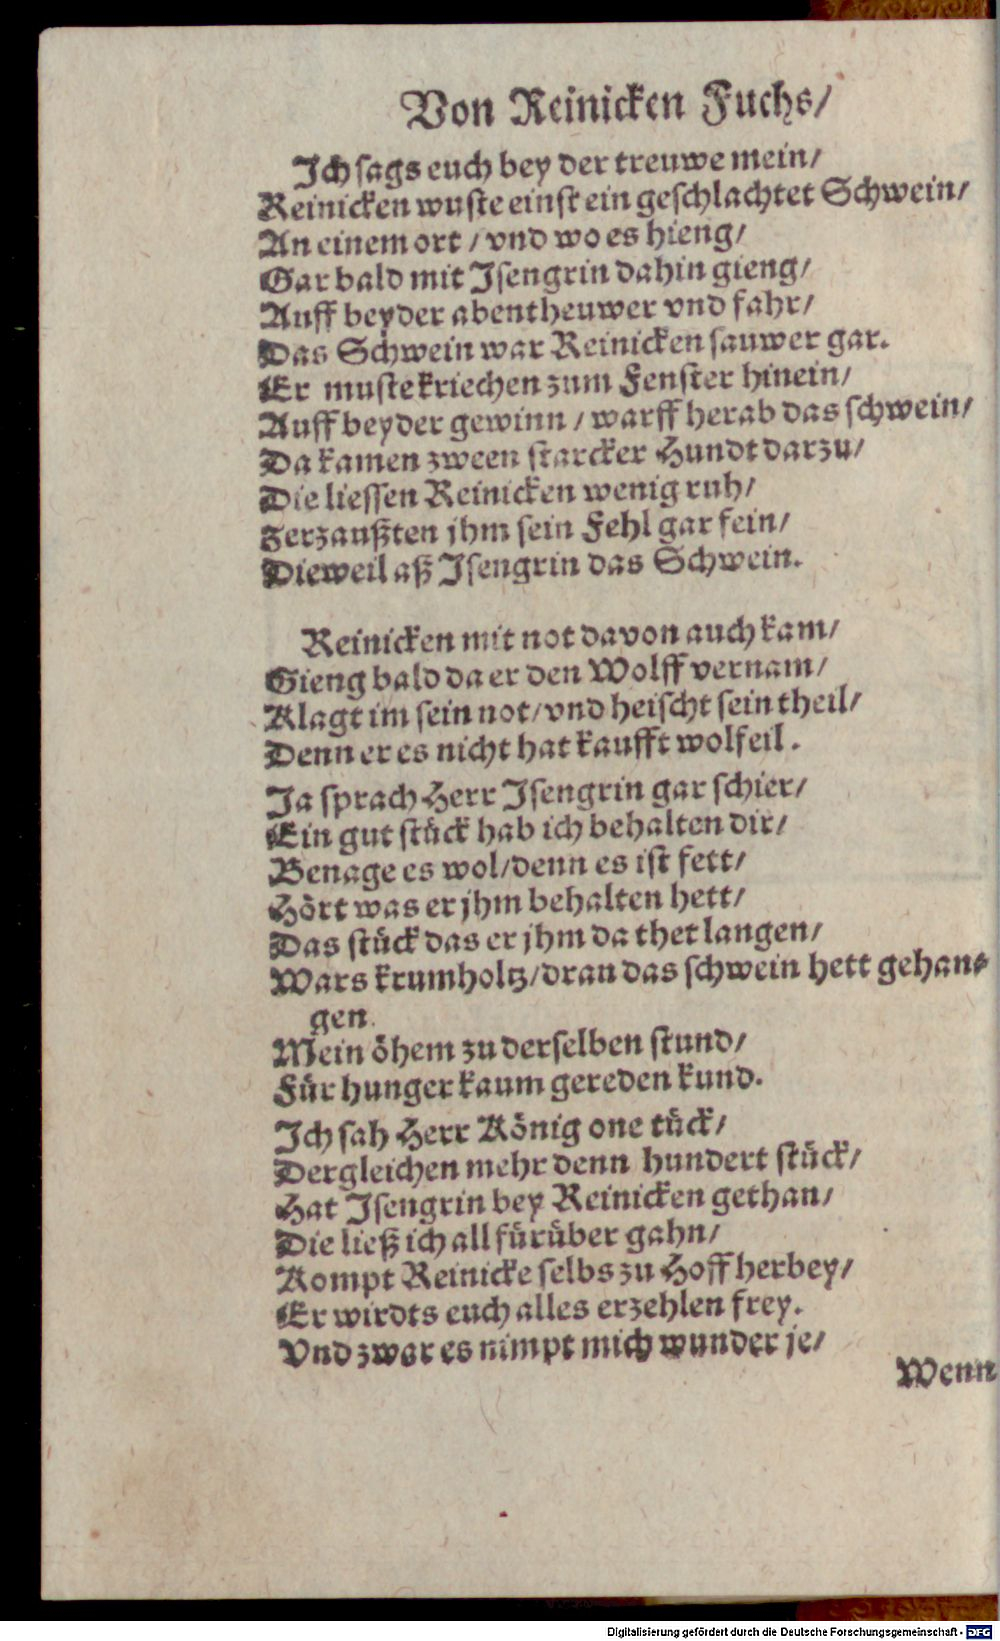 Von Reinicken Fuchs/
Ich sags euch bey der treuwe mein/
Reinicken wuste einst ein geschlachtet Schwein/
An einem ort / vnd wo es hieng/
Gar bald mit Isengrin dahin gieng/
Auff beyder abentheuwer vnd fahr/
Das Schwein war Reinicken sauwer gar.
Er muste kriechen zum Fenster hinein/
Auff beyder gewinn / warff herab das schwein/
Da kamen zween starcker Hundt darzu/
Die liessen Reinicken wenig ruh/
Zerzaußten jhm sein Fehl gar fein/
Dieweil aß Isengrin das Schwein.
Reinicken mit not davon auch kam/
Gieng bald da er den Wolff vernam/
Klagt im sein not/vnd heischt sein theil/
Denn er es nicht hat kaufft wolfeil.
Ja sprach Herr Isengrin gar schier/
Ein gut stück hab ich behalten dir/
Benage es wol/denn es ist fett/
Hört was er jhm behalten hett/
Das stück das er jhm da thet langen/
Wars krumholtz/dran das schwein hett gehan⸗
gen.
Mein öhem zu derselben stund/
Für hunger kaum gereden kund.
Ich sah Herr König one tück/
Dergleichen mehr denn hundert stück/
Hat Isengrin bey Reinicken gethan/
Die ließ ich all fürüber gahn/
Kompt Reinicke selbs zu Hoff herbey/
Er wirdts euch alles erzehlen frey.
Vnd zwar es nimpt mich wunder je/
Wenn
Digitalisierung gefördert durch die Deutsche Forschungsgemeinschaft - DFG